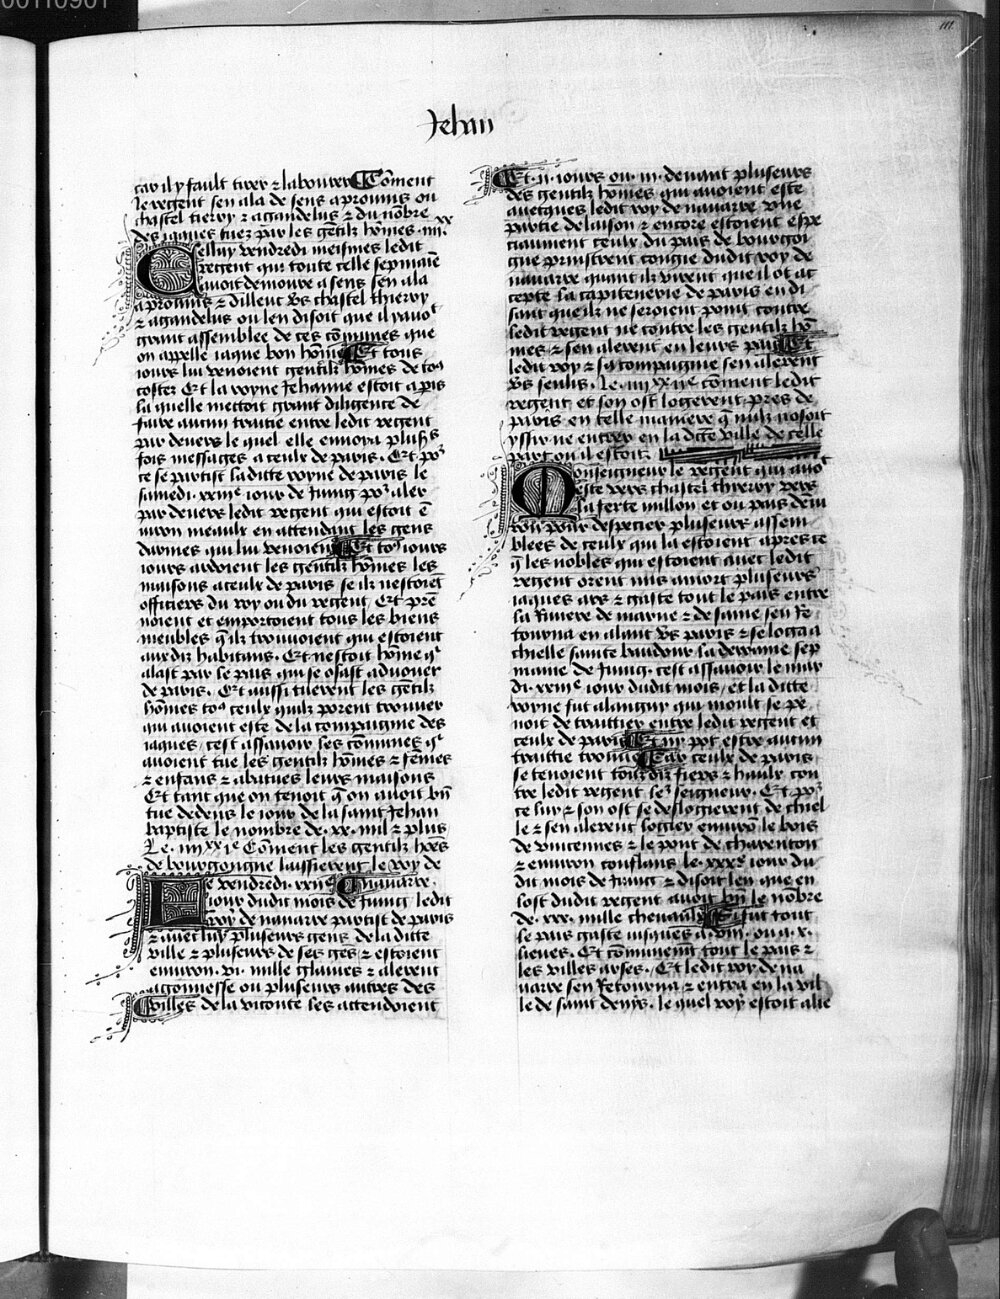 00110901
111
Jehan
car il y fault tirer ⁊ labourer Cōment
le regent sen ala de sens a prouuis ou
chastel tierry ⁊ a gandelus ⁊ du nōbre
des iaques tuez par les gētilz hōmes .iiii.xx
Celluy vendredi meismes ledit
regent qui toute celle sepmaīe
auoit demoure a sens sen ala
a prouuis ⁊ dillent v̄s chastel thierry
⁊ a gandelus ou len disoit que il y auoit
grant assemblee de ces cōmunes que
on appelle iaque bon hōme Et tous
iours lui venoient gentilz hōmes de to9
costez Et la royne Jehanne estoit a p̄is
la quelle mettoit grant diligence de
faire aucun traitie entre ledit regent
par deuers le quel elle enuoya plus̄s
fois messages a ceulx de paris. Et por
ce se partist la ditte royne de paris le
samedi .xxiiie iour de Juing por aler
par deuers ledit regent qui estoit ē
uiron meaulx en attendant les gens
darmes qui lui venoient Et to9 iours
iours ardoient les gentilz hōmes les
maisons a ceulx de paris se ilz nestoiēt
officiers du roy ou du regent. Et prē
noient et emportoient tous les biens
meubles q̄ ilz trouuoient qui estoient
aux diz habitans. Et nestoit hōme qi
alast par le pais qui se osast aduouer
de paris. Et aussi tuerent les gētilz
hōmes to9 ceulx quilz porent trouuer
qui auoient este de la compaignie des
iaques, cest assauoir les cōmunes qi
auoient tue les gentilz hōmes ⁊ fēmes
⁊ enfans ⁊ abatues leurs maisons
Et tant que on tenoit q̄ on auoit bn̄
tue dedens le iour de la saint Jehan
baptiste le nombre de .xx. mil ⁊ plus
Le .iiiixxie Cōment les gentilz hōes
de bourgongne laissierent le roy de
Le vendredi .xxiie Nauarre.
iour dudit mois de Juing ledit
roy de nauarre partist de paris
⁊ auec luy plusieurs gens de la ditte
ville ⁊ plusieurs de ses gēs ⁊ estoient
enuiron .vi. mille glaiues ⁊ alerent
a gonnesse ou plusieurs autres des
Villes de la viconte les attendoient
Et .ii. iours ou .iii. deuant pluseurs
des gentilz hōmes qui auoient este
auecques ledit roy de nauarre vne
partie de laison ⁊ encore estoient espe
ciaument ceulx du pais de bourgoi
gne prinstrent congie dudit roy de
nauarre quant ilz virent que il ot ac
cepte la capitenerie de paris en di
sant queilz ne seroient point contre
ledit regent ne contre les gentilz hō
mes ⁊ sen alerent en leurs pais Et
ledit roy ⁊ sa compaignie sen alerent
v̄s senlis. Le .iiiixxiie cōment ledit
regent et son ost logerent pres de
paris en telle maniere q̄ nulz nosoit
yssir ne entrer en la dc̄te ville de celle
part ou il estoit
Monseigneur le regent qui auoit
este vers chastel thierry vers
la ferte millon et ou pais denui
ron pour despecier plusieurs assem
blees de ceulx qui la estoient apres ce
q̄ les nobles qui estoient auec ledit
regent orent mis a mort plusieurs
iaques ars ⁊ gaste tout le pais entre
la Riuiere de marne ⁊ de saine sen Re
tourna en alant v̄s paris ⁊ se loga a
chielle sainte baudour la derraine sep
maine de Juing. cest assauoir le mar
di .xxvie iour dudit mois, et la ditte
royne fut a languy qui moult se pe
noit de traittier entre ledit regent et
ceulx de paris Et ny pot estre aucun
traittie trouue Car ceulx de paris
se tenoient tousdiz fiers ⁊ haulx con
tre ledit regent leur seigneur. Et por
ce luy ⁊ son ost se deslogierent de chiel
le ⁊ sen alerent logier enuirō le bois
de vincennes ⁊ le pont de charenton
⁊ enuiron conflans le .xxxe iour du
dit mois de Juing ⁊ disoit len que en
lost dudit regent auoit bn̄ le nōbre
de .xxx. mille cheuaulx Si fut tout
le pais gaste iusques a .viii. ou a .x.
lieues. Et cōmunemt̄ tout le pais ⁊
les villes arses. Et ledit roy de na
uarre sen Retourna ⁊ entra en la vil
le de saint denys. le quel roy estoit alie